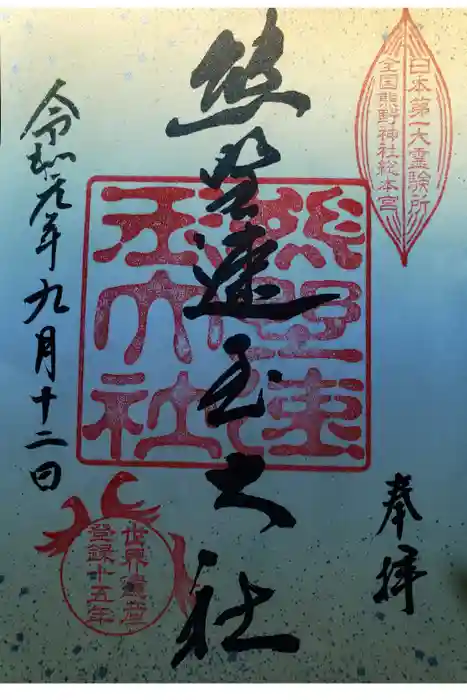 日本第一大霊験所
全国熊野神社総本宮
奉拝
熊野速玉大社
熊野速
玉大社
令和元年九月十二日
世界遺産
登録十五年